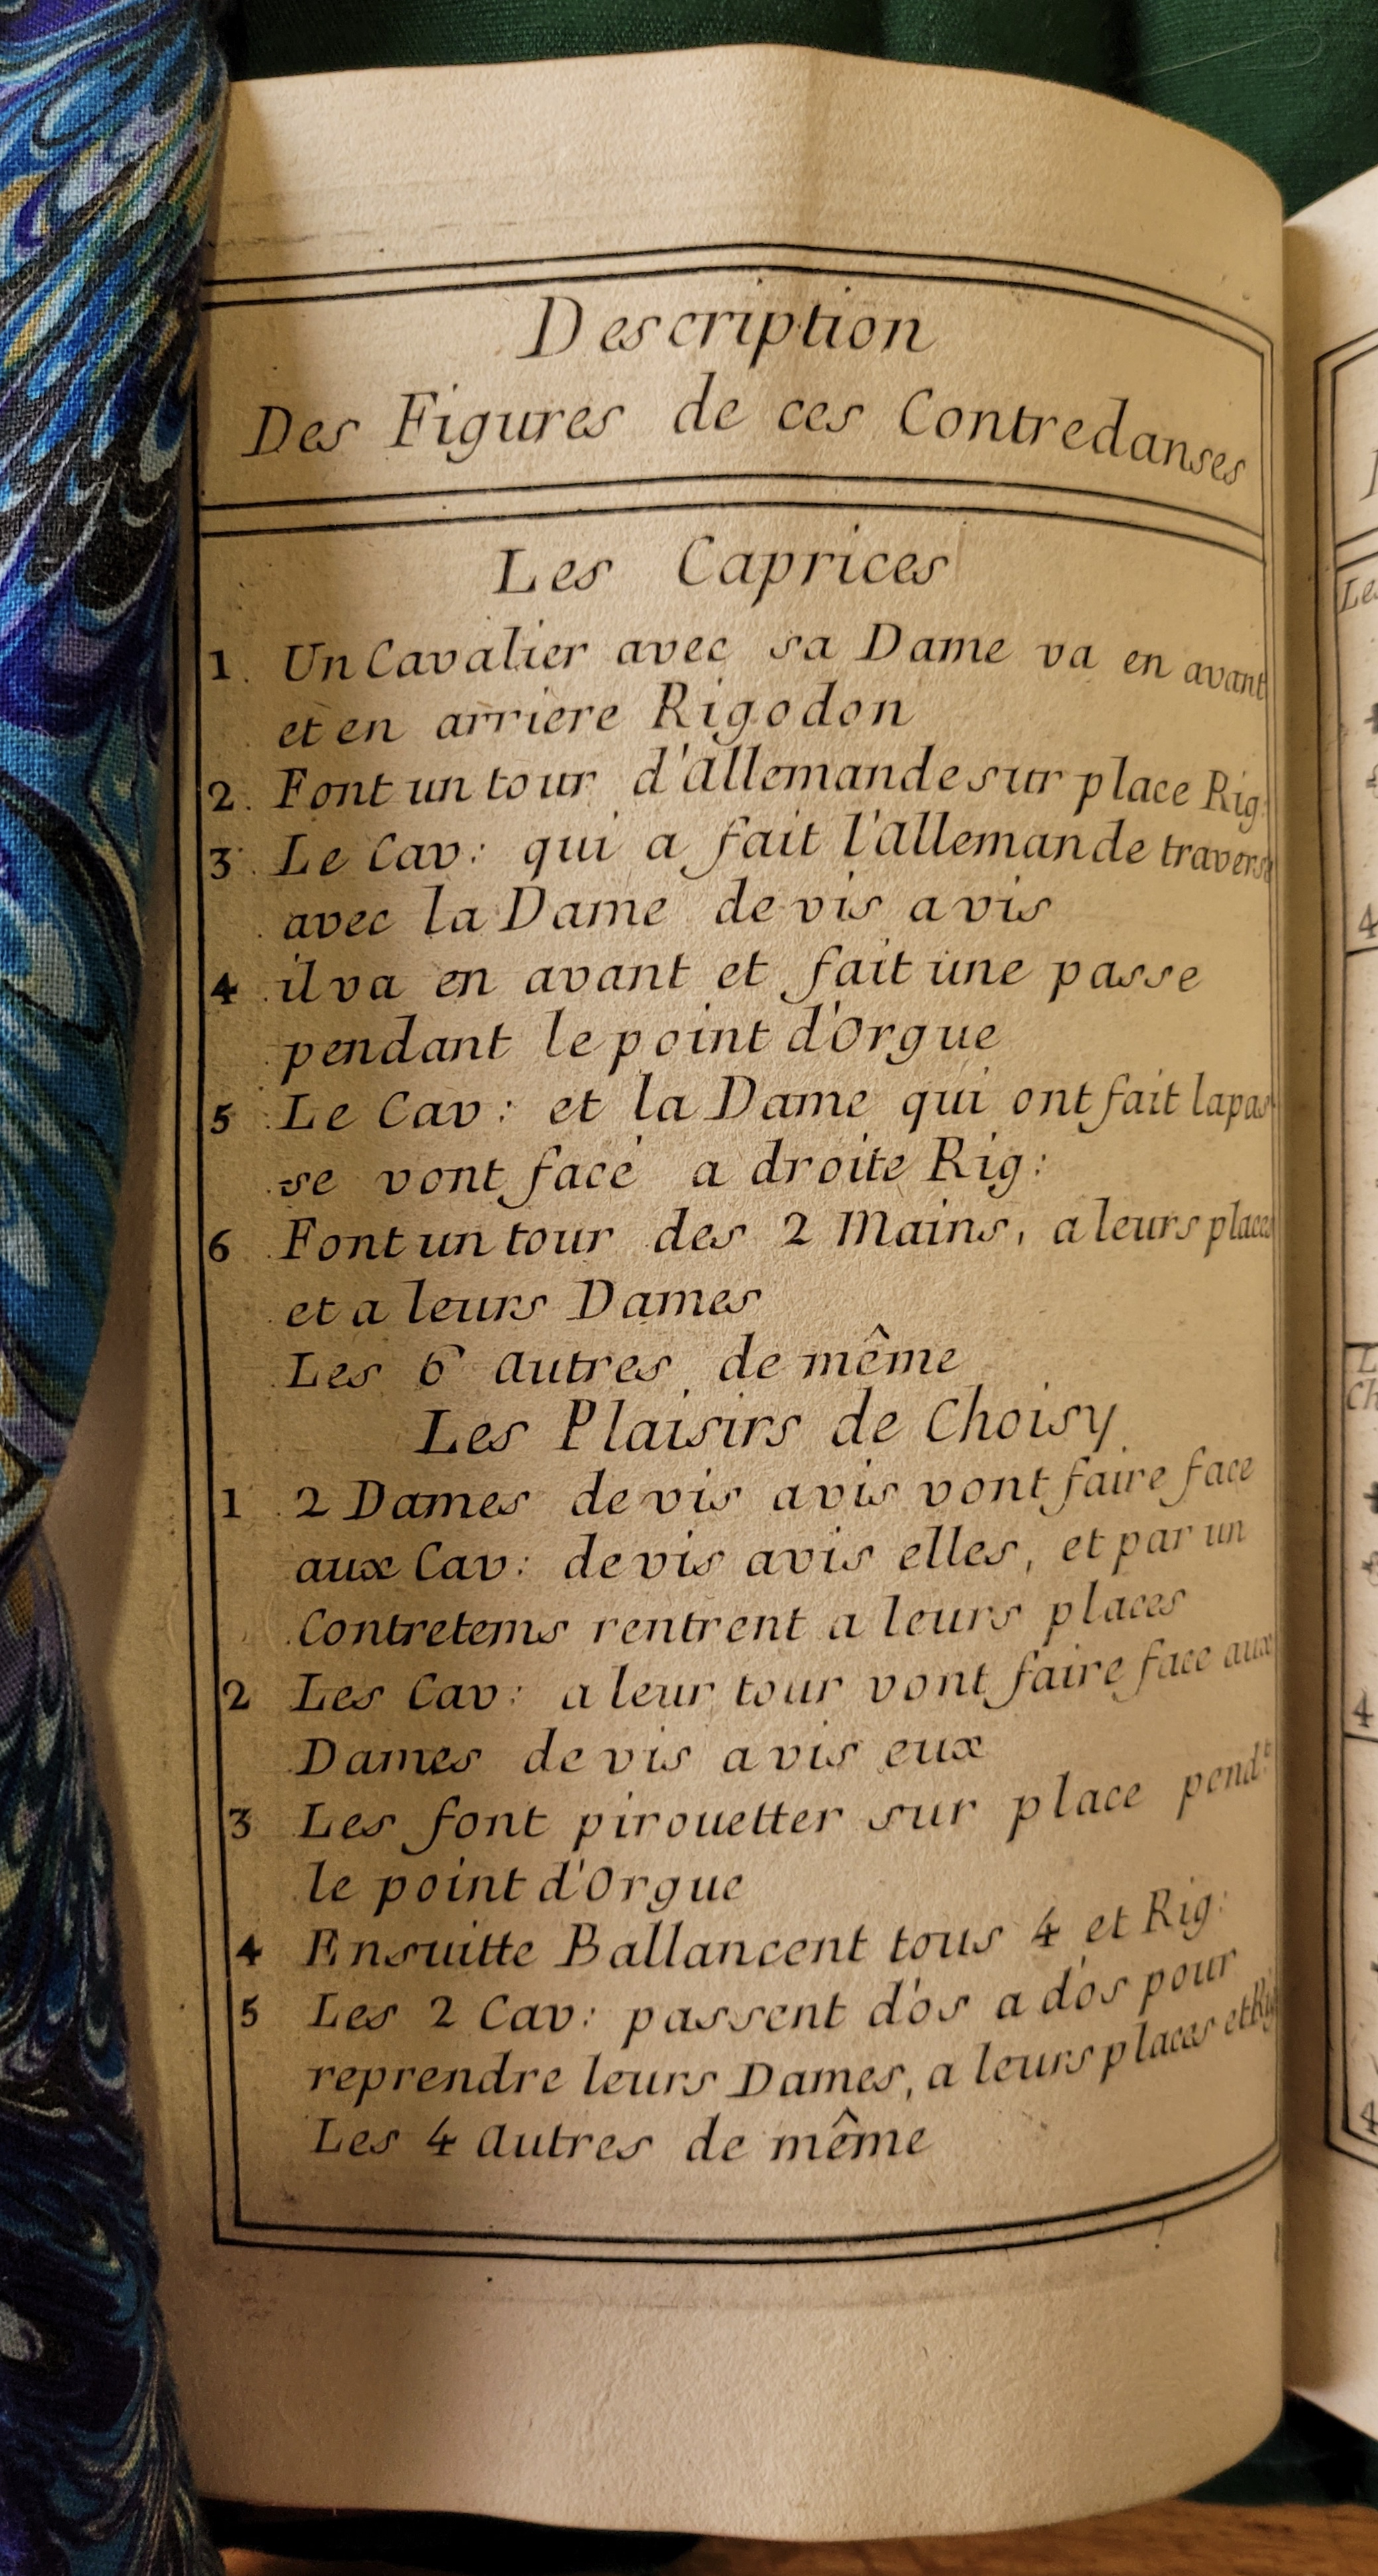 Description
Des Figures de ces Contredanses
Les Caprices
1. Un Cavalier avec sa Dame va en avant
et en arriere Rigodon
2. Font un tour d'allemande sur place Rig:
3. Le Cav: qui a fait l'allemande traverse
avec la Dame de vis a vis
4 il va en avant et fait une passe
pendant le point d'Orgue
5 Le Cav: et la Dame qui ont fait la pas-
se vont face a droite Rig:
6 Font un tour des 2 Mains, a leurs places
et a leurs Dames
Les 6 autres de même
Les Plaisirs de Choisy
1 2 Dames de vis a vis vont faire face
aux Cav: de vis a vis elles, et par un
Contretems rentrent a leurs places
2 Les Cav: a leur tour vont faire face aux
Dames de vis a vis eux
3 Les font pirouetter sur place pend.t
le point d'Orgue
4 Ensuitte Ballancent tous 4 et Rig:
5 Les 2 Cav: passent d'os a d'os pour
reprendre leurs Dames, a leurs places et Rig
Les 4 autres de même
4
4
4